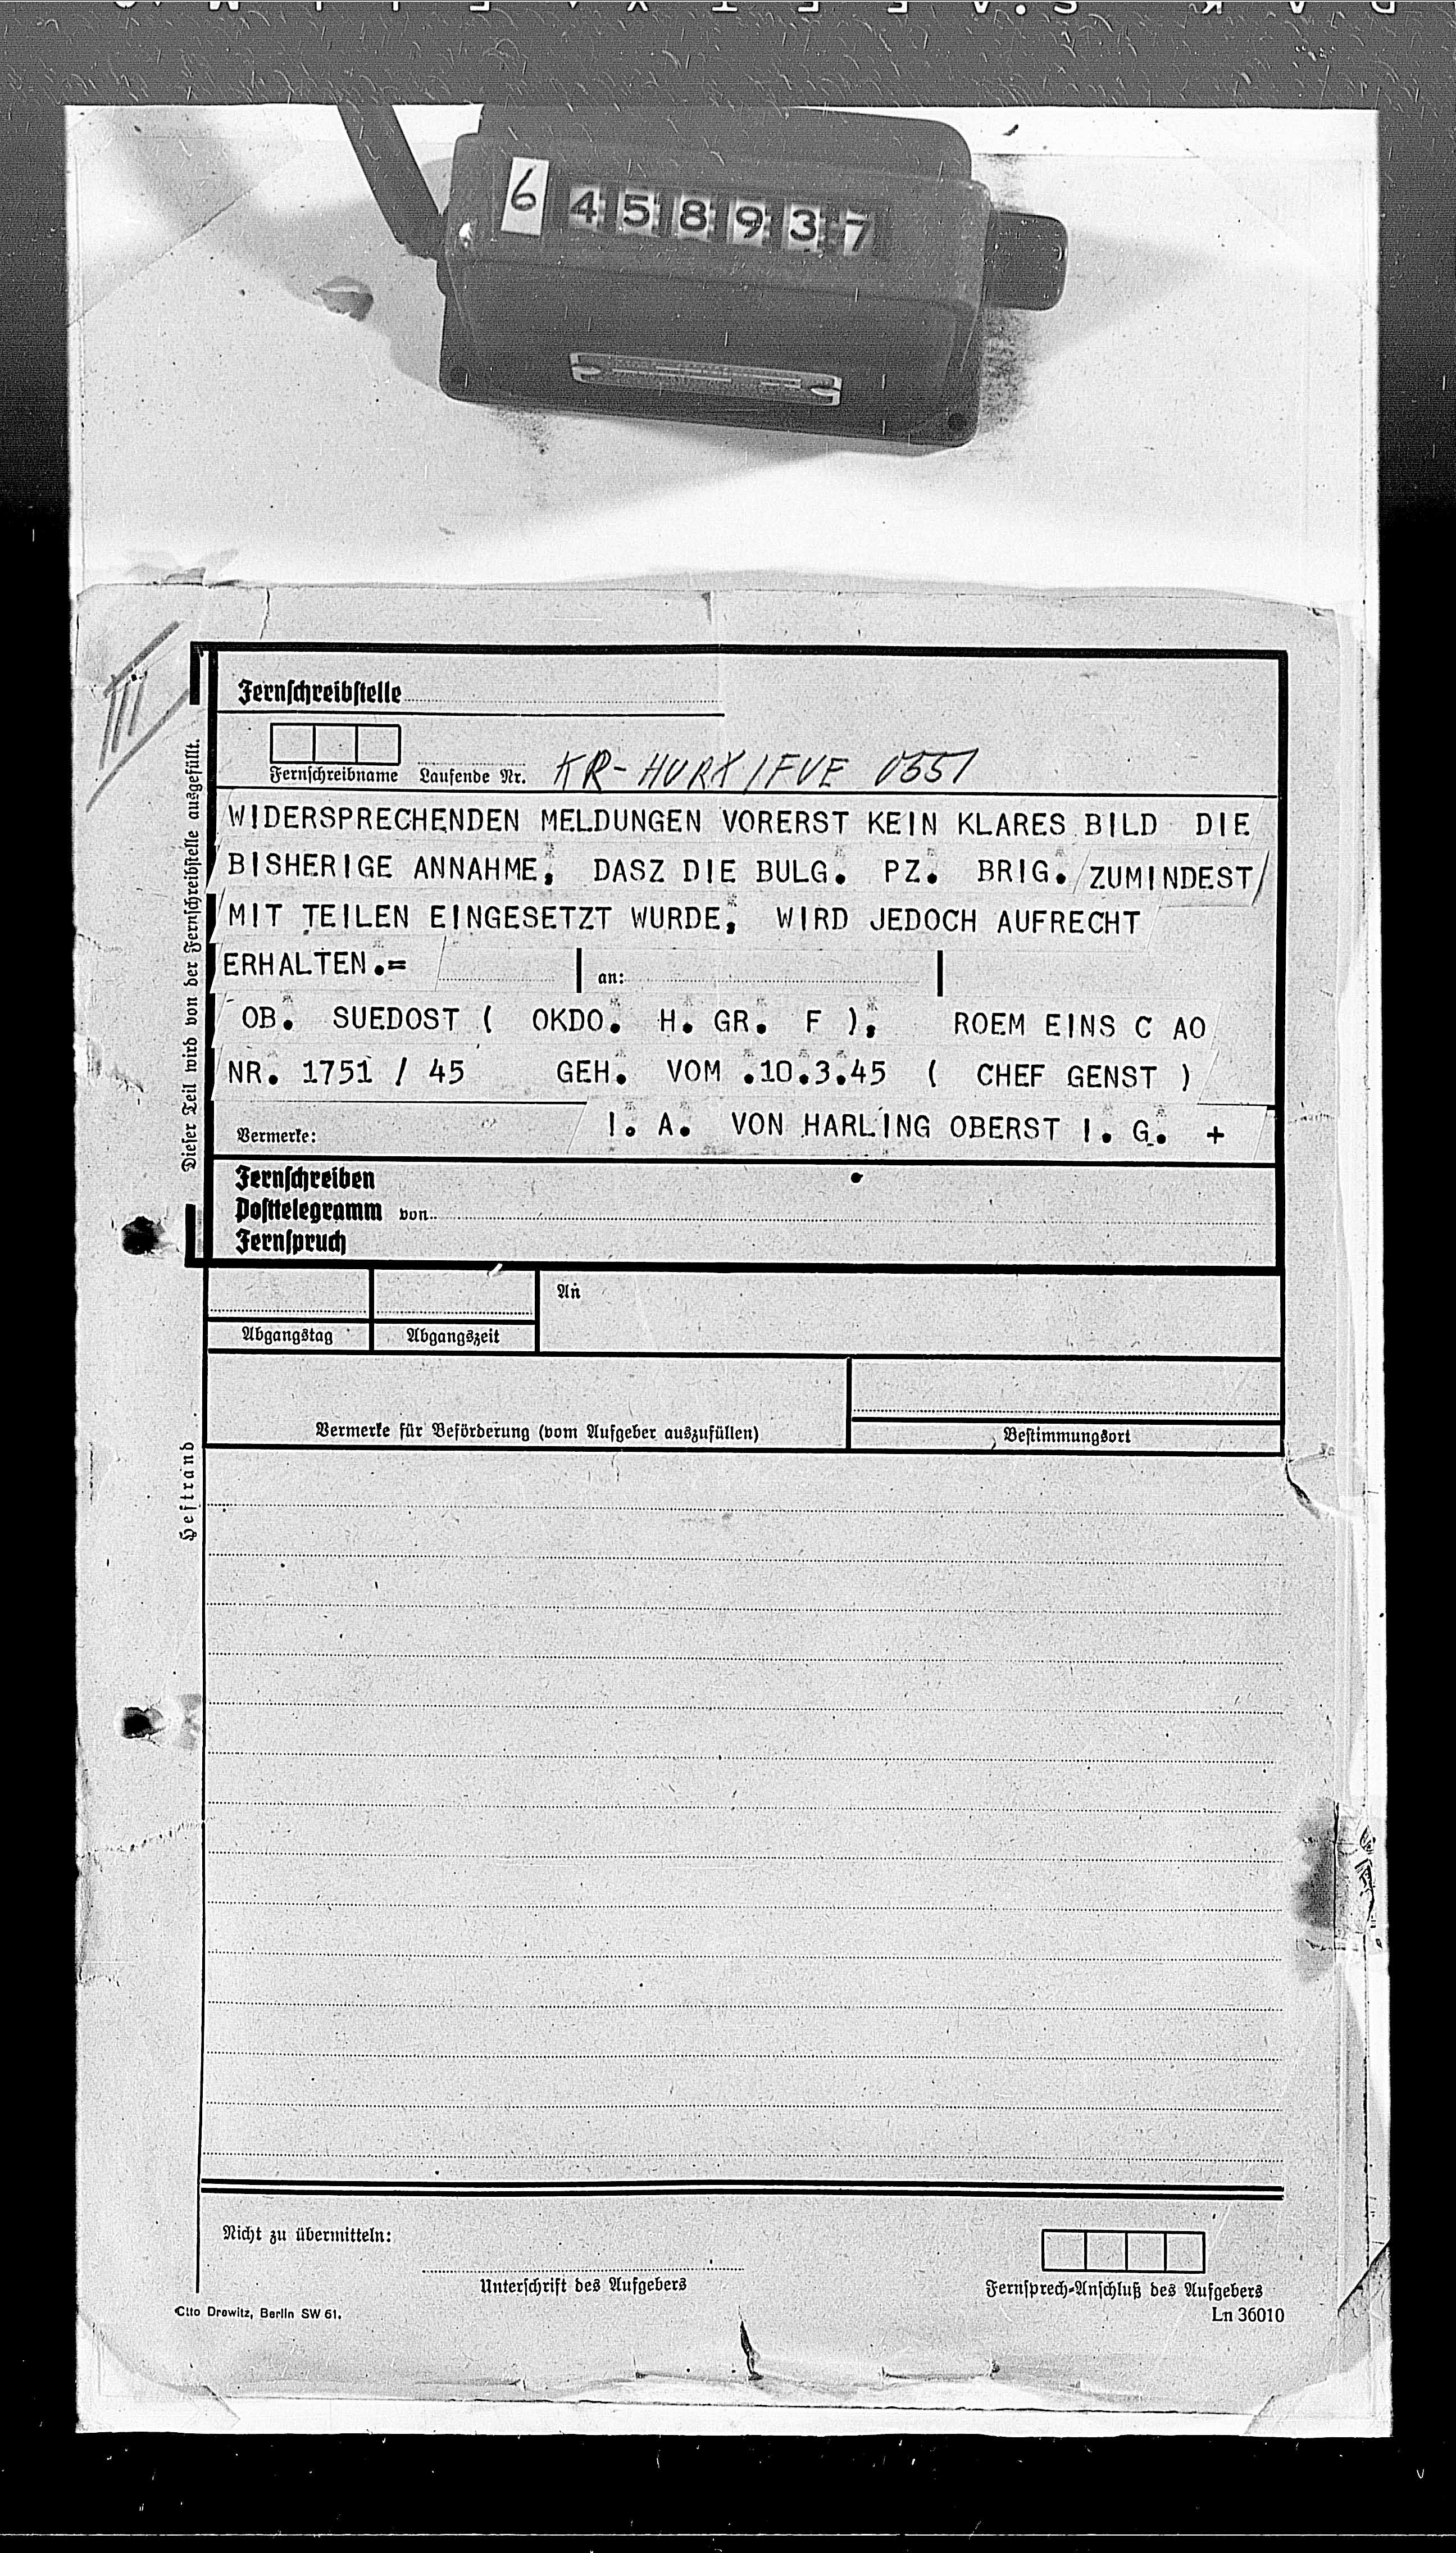 6 458937
III
Fernschreibstelle
Fernschreibname Laufende Nr. KR-HURX/FUE 0551
WIDERSPRECHENDEN MELDUNGEN VORERST KEIN KLARES BILD DIE
BISHERIGE ANNAHME, DASZ DIE BULG. PZ. BRIG. ZUMINDEST
MIT TEILEN EINGESETZT WURDE, WIRD JEDOCH AUFRECHT
ERHALTEN.= an:
OB. SUEDOST ( OKDO. H. GR. F ), ROEM EINS C AO
NR. 1751 / 45 GEH. VOM .10.3.45 ( CHEF GENST )
Vermerke: I. A. VON HARLING OBERST I. G. +
Fernschreiben
Posttelegramm von
Fernspruch
Dieser Teil wird von der Fernschreibstelle ausgefüllt.
An
Abgangstag Abgangszeit
Vermerke für Beförderung (vom Aufgeber auszufüllen) Bestimmungsort
Heftrand
Nicht zu übermitteln:
Unterschrift des Aufgebers Fernsprech-Anschluß des Aufgebers
Otto Drewitz, Berlin SW 61. Ln 36010